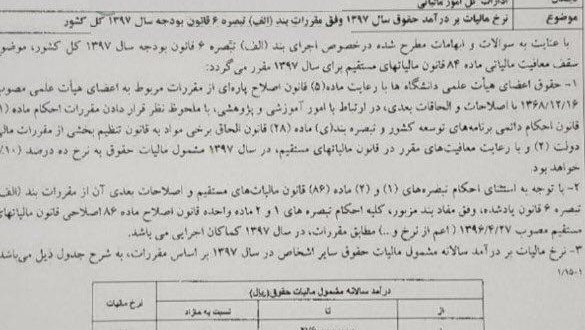 ادارات کل امور مالیاتی
موضوع نرخ مالیات بر درآمد حقوق سال ۱۳۹۷ وفق مقررات بند (الف) تبصره ۶ قانون بودجه سال ۱۳۹۷ کل کشور
با عنایت به سوالات و ابهامات مطرح شده درخصوص اجرای بند (الف) تبصره ۶ قانون بودجه سال ۱۳۹۷ کل کشور، موضوع
سقف معافیت مالیاتی ماده ۸۴ قانون مالیاتهای مستقیم برای سال ۱۳۹۷ مقرر می‌گردد:
۱- حقوق اعضای هیأت علمی دانشگاه ها با رعایت ماده(۵) قانون اصلاح پاره‌ای از مقررات مربوط به اعضای هیأت علمی مصوب
۱۳۶۸/۱۲/۱۶ با اصلاحات و الحاقات بعدی، در ارتباط با امور آموزشی و پژوهشی، با ملحوظ نظر قرار دادن مقررات احکام ماده (۱)
قانون احکام دائمی برنامه‌های توسعه کشور و تبصره بند(ی) ماده (۲۸) قانون الحاق برخی مواد به قانون تنظیم بخشی از مقررات مالی
دولت (۲) و با رعایت معافیت‌های مقرر در قانون مالیاتهای مستقیم، در سال ۱۳۹۷ مشمول مالیات حقوق به نرخ ده درصد (۱۰٪)
خواهد بود
۲- با توجه به استثنای احکام تبصره‌های (۱) و (۲) ماده (۸۶) قانون مالیات‌های مستقیم و اصلاحات بعدی آن از مقررات بند (الف)
تبصره ۶ قانون یادشده، وفق مفاد بند مزبور، کلیه احکام تبصره های ۱ و ۲ ماده واحده قانون اصلاح ماده ۸۶ اصلاحی قانون مالیاتهای
مستقیم مصوب ۱۳۹۶/۴/۲۷ (اعم از نرخ و ..) مطابق مقررات، در سال ۱۳۹۷ کماکان اجرایی می باشد.
۳- نرخ مالیات بر درآمد سالانه مشمول مالیات حقوق سایر اشخاص در سال ۱۳۹۷ بر اساس مقررات، به شرح جدول ذیل می‌باشد
۱/۱۵۰۱
درآمد سالانه مشمول مالیات حقوق (ریال) نرخ مالیات
از تا نسبت به مازاد